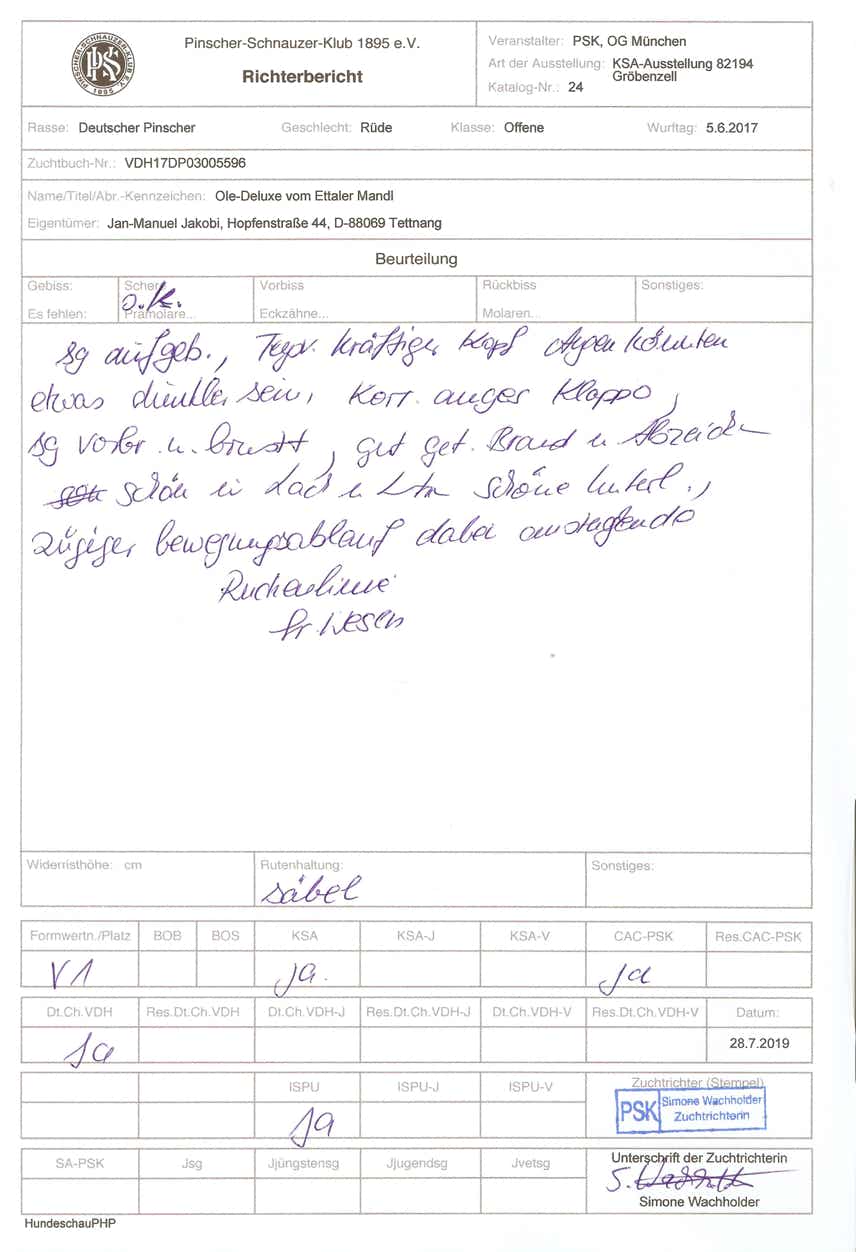 PINSCHER-SCHNAUZER-KLUB E.V.
PSK
1895
Pinscher-Schnauzer-Klub 1895 e.V.
Richterbericht
Veranstalter: PSK, OG München
Art der Ausstellung: KSA-Ausstellung 82194
Gröbenzell
Katalog-Nr.: 24
Rasse: Deutscher Pinscher Geschlecht: Rüde Klasse: Offene Wurftag: 5.6.2017
Zuchtbuch-Nr.: VDH17DP03005596
Name/Titel/Abr.-Kennzeichen: Ole-Deluxe vom Ettaler Mandl
Eigentümer: Jan-Manuel Jakobi, Hopfenstraße 44, D-88069 Tettnang
Beurteilung
Gebiss: Schere Vorbiss Rückbiss Sonstiges:
o.k.
Es fehlen: Prämolare... Eckzähne... Molaren...
sg aufgeb., Typv. kräftiger Kopf Augen könnten
etwas dunkler sein, Korr. Klappo,
sg Vorbr. u. brust, gut get. Brand u Abzeichen
schön in schöne Unterl.,
zügiger bewegungsablauf dabei
Rückenlinie
fr. Wesen
Widerristhöhe: cm Rutenhaltung: Sonstiges:
säbel
Formwertn./Platz BOB BOS KSA KSA-J KSA-V CAC-PSK Res.CAC-PSK
V1 ja. ja
Dt.Ch.VDH Res.Dt.Ch.VDH Dt.Ch.VDH-J Res.Dt.Ch.VDH-J Dt.Ch.VDH-V Res.Dt.Ch.VDH-V Datum:
ja 28.7.2019
ISPU ISPU-J ISPU-V Zuchtrichter (Stempel)
ja
PSK Simone Wachholder
Zuchtrichterin
SA-PSK Jsg Jjüngstensg Jjugendsg Jvetsg Unterschrift der Zuchtrichterin
Simone Wachholder
HundeschauPHP